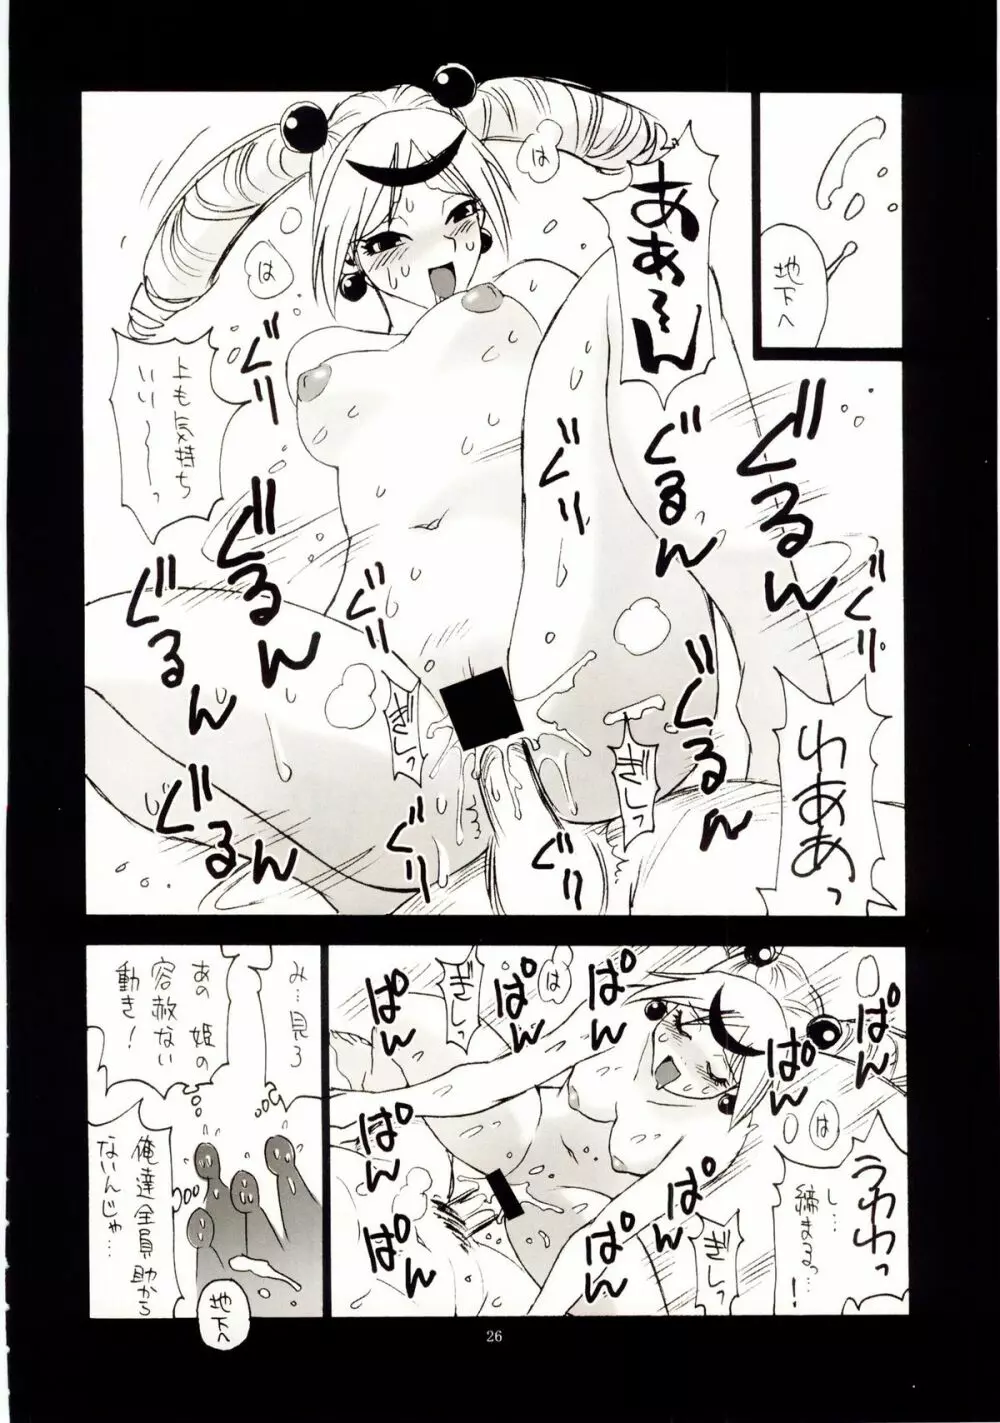 地下へ
ああ〜ん
は
は
上も気持ち
いい〜〜っ
ぐり
ぐり
ぐり
ぐるんっ
ぐるん
ぐるん
ぐるん
ぐるん
ぐるん
ぐり
ぐり
ぐり
ぐり
ぎしっ
ぎしっ
わああっ
ぱん
ぱん
ぱん
ぱん
ぱん
ぱん
ぱん
ぱん
ぎしっ
ぎしっ
は
は
うわわっ
し…
締まるっ…!
み…見ろ
あの姫の
容赦ない
動き!
俺達全員助から
ないんじゃ…
地下へ
26